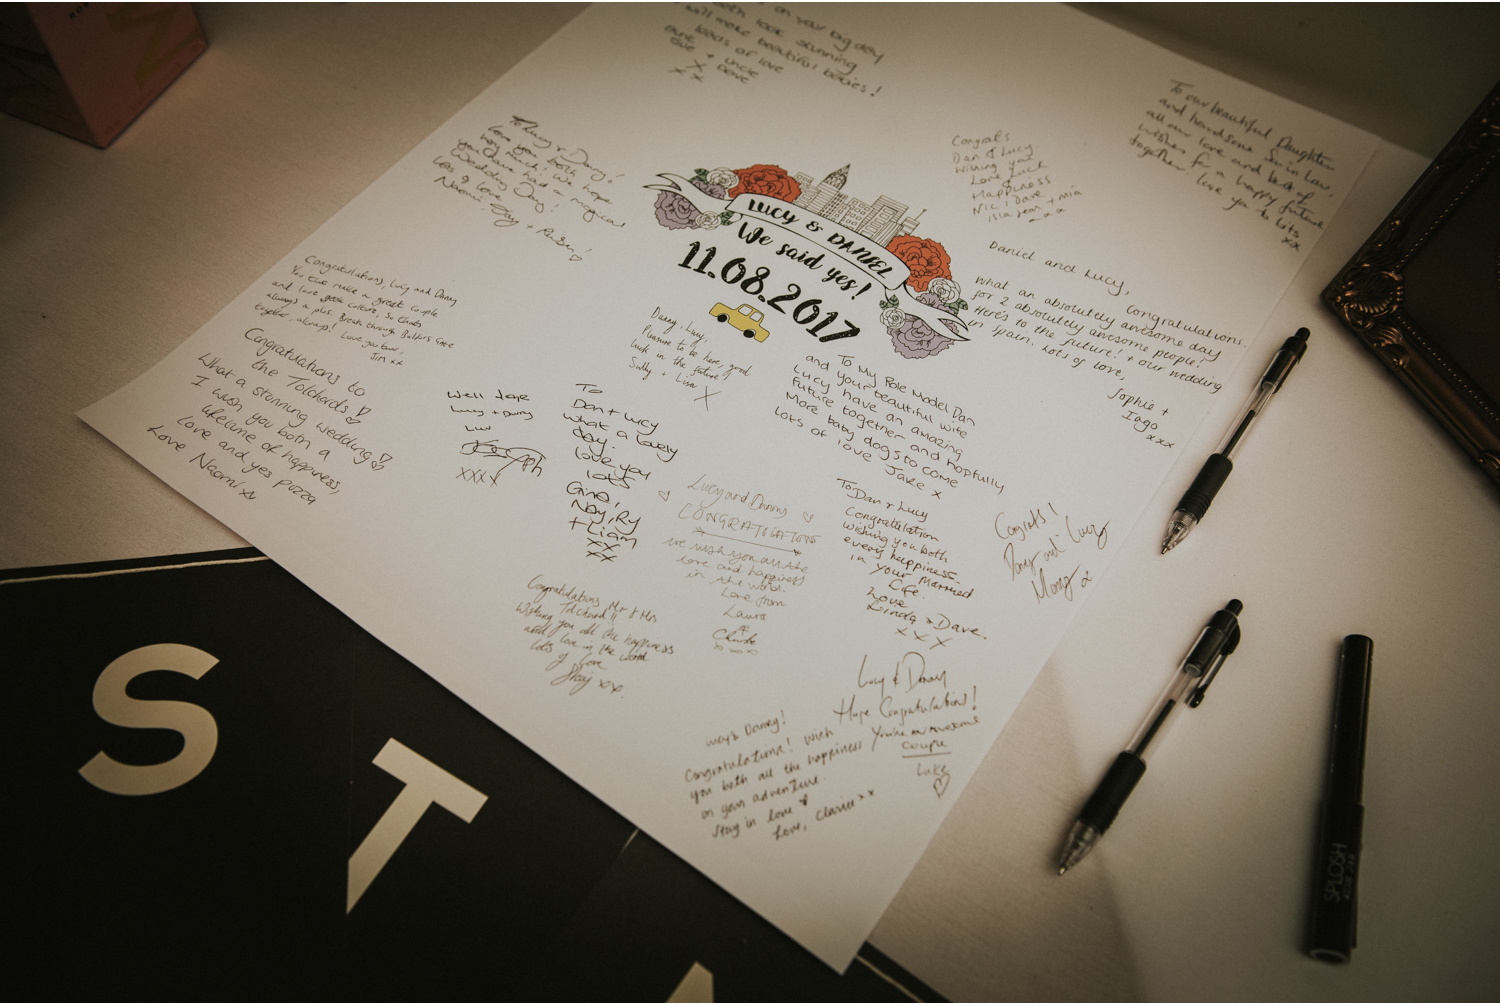 on your big day
both look stunning
will make beautiful babies!
loads of love
Aunt + Uncle
Sue Dave
x
x x
To Lucy & Danny!
Love you both
very much! We hope
you have had a magical
Wedding Day!
Lots of love
Naomi, Jay + Reuben
Congrats
Dan & Lucy
Wishing you
Love Luck
&
Happiness
Nic, Dave
Isla Jean + Mia
x x x
To our beautiful Daughter
and handsome Son in Law,
all our love and best of
wishes for a happy future
together. love you to bits
xx
LUCY & DANIEL
We said yes!
11.08.2017
Daniel and Lucy,
What an absolutely Congratulations.
for 2 absolutely awesome day
Here's to the awesome people!
in Spain. future! + our wedding
Lots of love,
Sophie +
Iago
xxx
Congratulations, Lucy and Danny
You two make a great couple
and love
always a plus.
together, always! Love you two,
Jim xx
Danny, Lucy,
Pleasure to be here, good
luck in the future!
Sully + Lisa
X
Congratulations to
the Tolchards!
What a stunning wedding!
I wish you both a
lifetime of happiness,
Love and yes pizza
Love Naomi xx
Well done
Lucy + Danny
Luv
xxxx
To
Dan + Lucy
What a lovely
day.
Love you
lots
Gina,
Nay, Ry
+ Liam
xx
xx
To My Role Model Dan
and your beautiful wife
Lucy have an amazing
future together and hopfully
More baby dogs to come
lots of love Jake x
Lucy and Danny
CONGRATULATIONS
we wish you all the
love and happiness
in the world.
Love from
Laura
&
xxxx
To Dan & Lucy
Congratulation
wishing you both
every happiness.
in your married
Life.
Love
Linda & Dave.
x x x
Congrats!
Dany and Lucy
Congratulations Mr & Mrs
Tolchard!!
Wishing you all the happiness
and love in the world
lots of love
xx.
Lucy & Danny
Huge Congratulations!
You're an awesome
couple
Luke
Lucy & Danny!
Congratulations! Wish
you both all the happiness
on your adventure.
Stay in love
Love, Clarice xx
ST
SPLOSH